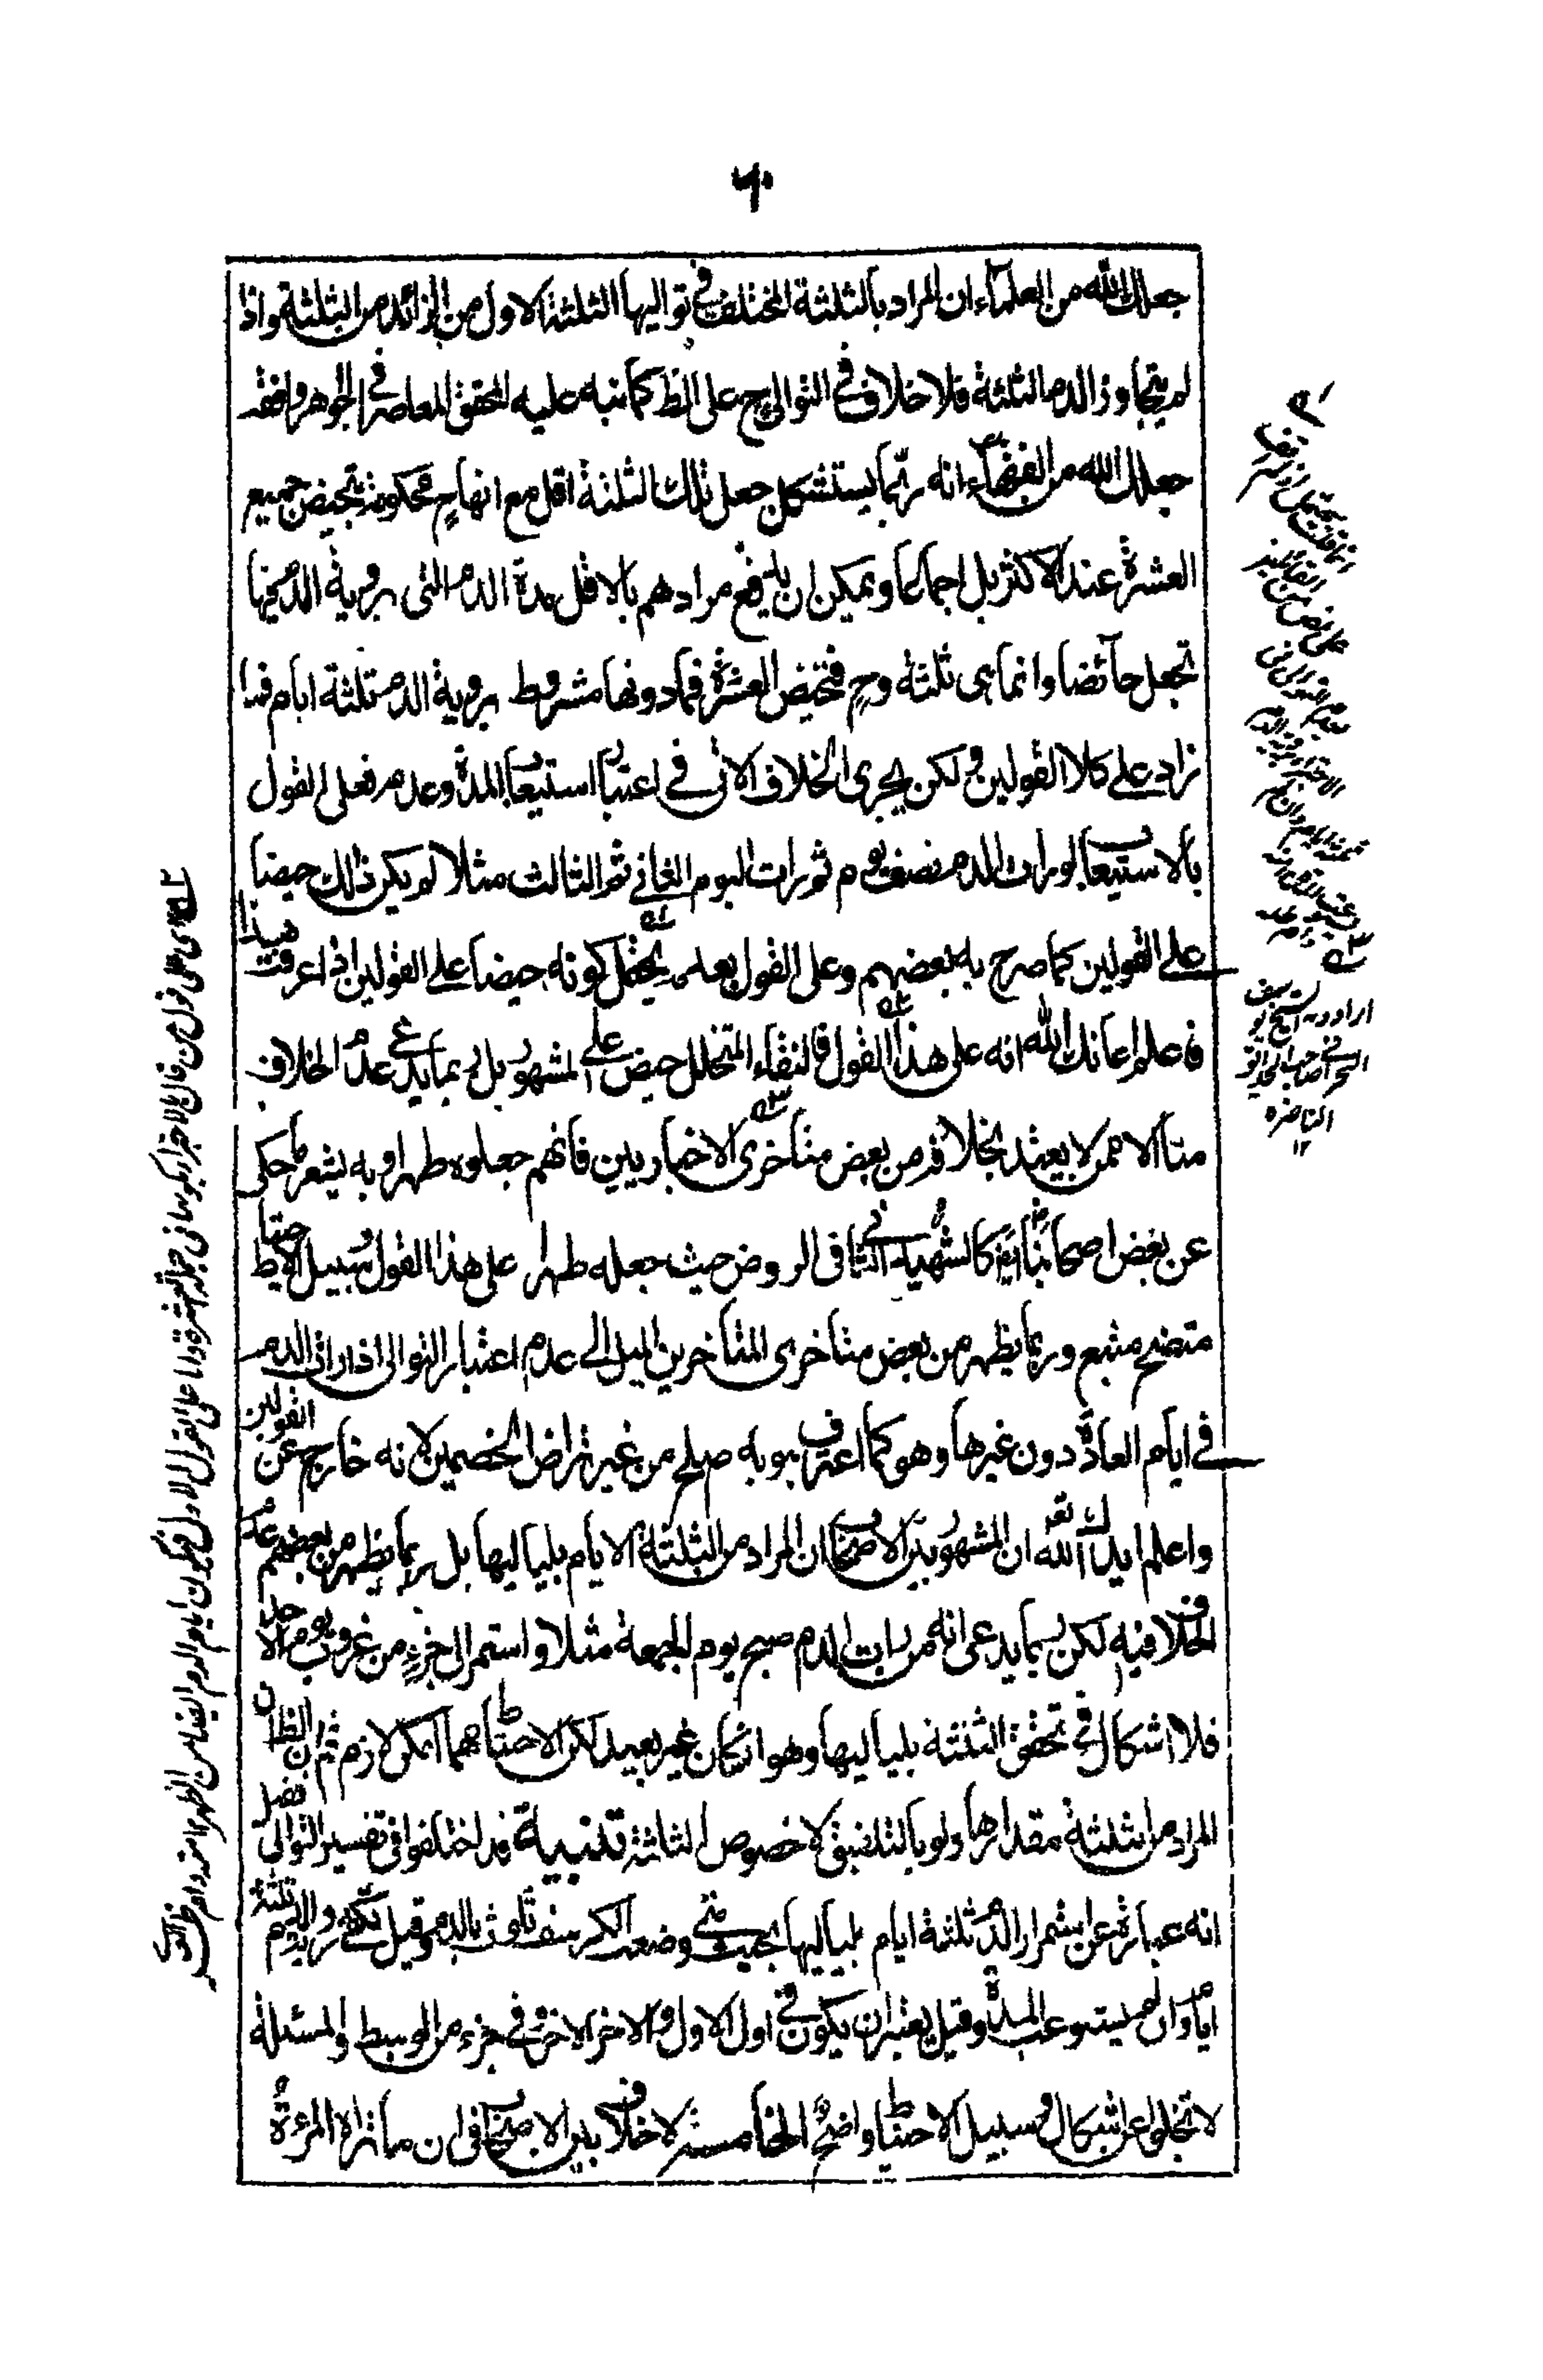 ۶۰
جعلك الله من العلماء ان المراد بالثلثة المختلف فى تواليها الثلثة الاول من الزائد من الثلثة واذا
لم يتجاوز الدم الثلثة فلا خلاف فى التوالى ح على الظ كما نبه عليه المحقق المعاصر فى الجوهر وافقه
جعلك الله من الفقهاء انه ربما يستشكل جعل تلك الثلثة اقل مع انها ح محكومة بتحيض جميع
العشرة عند الاكثر بل اجماعا ويمكن ان يدفع مرادهم بالاقل مدة الدم التى بروية الدم فيها
تجعل حائضا وانما هى ثلثة وح فتحيض العشرة فما دونها مشروط بروية الدم ثلثة ايام فما
زاد على كلا القولين ولكن يجرى الخلاف الاتى فى اعتبار استيعاب المدة وعدمه فعلى القول
بالاستيعاب لو رات الدم نصف يوم ثم رات اليوم الثانى ثم الثالث مثلا لم يكن ذلك حيضا
على القولين كما صرح به بعضهم وعلى القول بعدمه يحتمل كونه حيضا على القولين اذا عرفت هذا
فاعلم اعانك الله انه على هذا القول فالنقاء المتخلل حيض على المشهور بل ربما يدعى عدم الخلاف
منا الا ممن لا يعتد بخلافه من بعض متاخرى الاخباريين فانهم جعلوه طهرا وبه يشعر ما حكى
عن بعض اصحابنا ايضا كالشهيد الثانى فى الروض حيث جعله طهرا على هذا القول وسبيل الاحتياط
متضح متبع وربما يظهر من بعض متاخرى المتاخرين الميل الى عدم اعتبار التوالى اذا رات الدم
فى ايام العادة دون غيرها وهو كما اعترف به صلح من غير تراض الخصمين لانه خارج عن القولين
واعلم ايدك الله تع ان المشهور بين الاصحاب ان المراد من الثلثة الايام بلياليها بل ربما يظهر من بعضهم عدم
الخلاف فيه لكن ربما يدعى انه من رات الدم صبح يوم الجمعة مثلا واستمر الى جزء من غروب يوم الاحد
فلا اشكال فى تحقق الثلثة بلياليها وهو ان كان غير بعيد لكن الاحتياط مهما امكن لازم ثم ان الظ ان
المراد من الثلثة مقدارها ولو بالتلفيق لا خصوص الثلثة تنبيه قد اختلفوا فى تفسير التوالى فقيل
انه عبارة عن استمرار الدم ثلثة ايام بلياليها بحيث متى وضعت الكرسف تلوث بالدم وقيل يكفى روية الدم ثلثة
ايام وان لم يستوعب المدة وقيل يعتبر ان يكون فى اول الاول واخر الاخر وفى جزء من الوسط والمسئلة
لا تخلو عن اشكال وسبيل الاحتياط واضح الخامسة لا خلاف بين الاصحاب فى ان ما تراه المرءة
اراد به الشيخ يوسف
البحرانى صاحب الحدائق
الناضرة
١٢